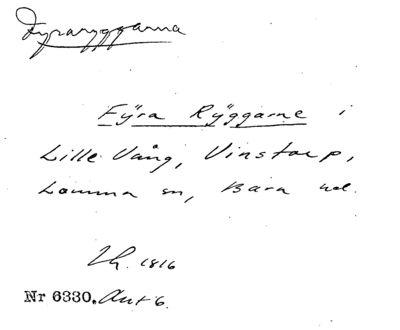 Fyraryggarna
Fÿra Rÿggarne i
Lille Vång, Vinstorp,
Lomma sn, Bara hd.
Lh. 1816
Nr 6330. Akt 6.